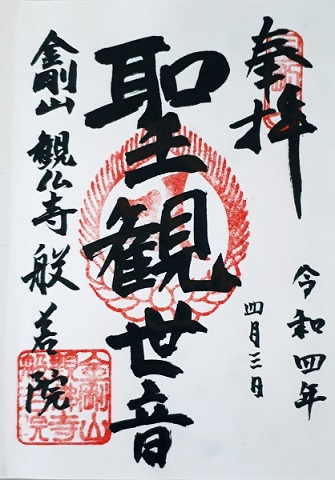 奉拝
令和四年
四月三日
聖観世音
金剛山 観仏寺 般若院
金剛山
観仏寺
般若院